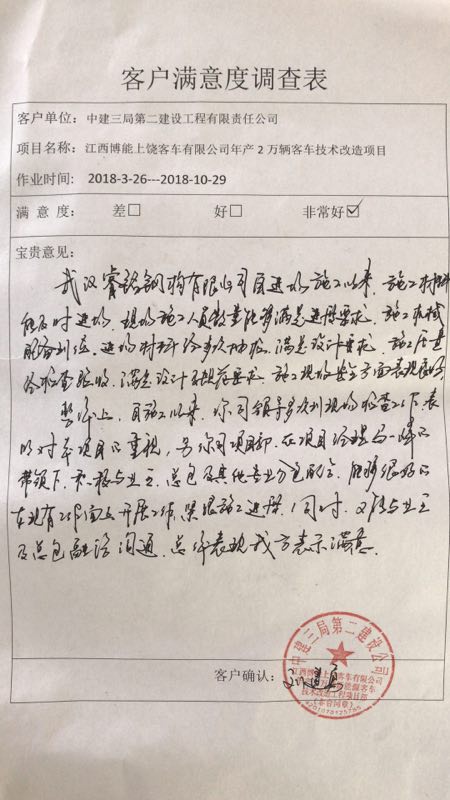 客户满意度调查表
客户单位: 中建三局第二建设工程有限责任公司
项目名称: 江西博能上饶客车有限公司年产2万辆客车技术改造项目
作业时间: 2018-3-26---2018-10-29
满 意 度: 差□ 好□ 非常好☑
宝贵意见:
武汉睿铭钢构有限公司自进场施工以来,施工材料
能及时进场,现场施工人员数量能够满足进度要求,施工机械
配备到位,进场材料经多次抽检,满足设计要求,施工质量
经检查验收,满足设计及规范要求,施工现场安全方面表现良好
整体上,自施工以来,你司领导多次到现场检查工作,表
以对本项目的重视,另你司项目部,在项目经理的
带领下,积极与业主,总包及其他专业分包配合,能够很好的
在现有工作面上开展工作,紧跟施工进度,同时,又能与业主
及总包融洽沟通,总体表现我方表示满意.
客户确认:
中建三局第二建设公司
技术改造工程项目部